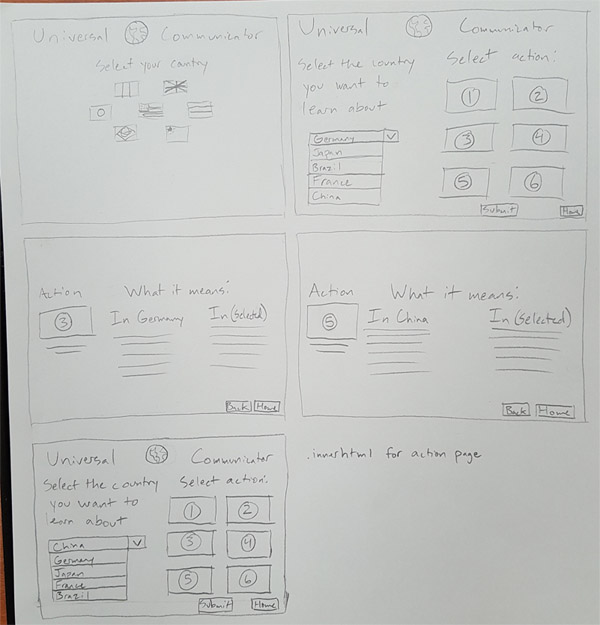 Universal Communicator
Select your country
Universal Communicator
Select the country
you want to
learn about
Germany
Japan
Brazil
France
China
Select action:
1
2
3
4
5
6
Submit
Home
Action
3
What it means:
In Germany
In (selected)
Back
Home
Action
5
What it means:
In China
In (selected)
Back
Home
Universal Communicator
Select the country
you want to
learn about
China
Germany
Japan
France
Brazil
Select action:
1
2
3
4
5
6
Submit
Home
.innerhtml for action page